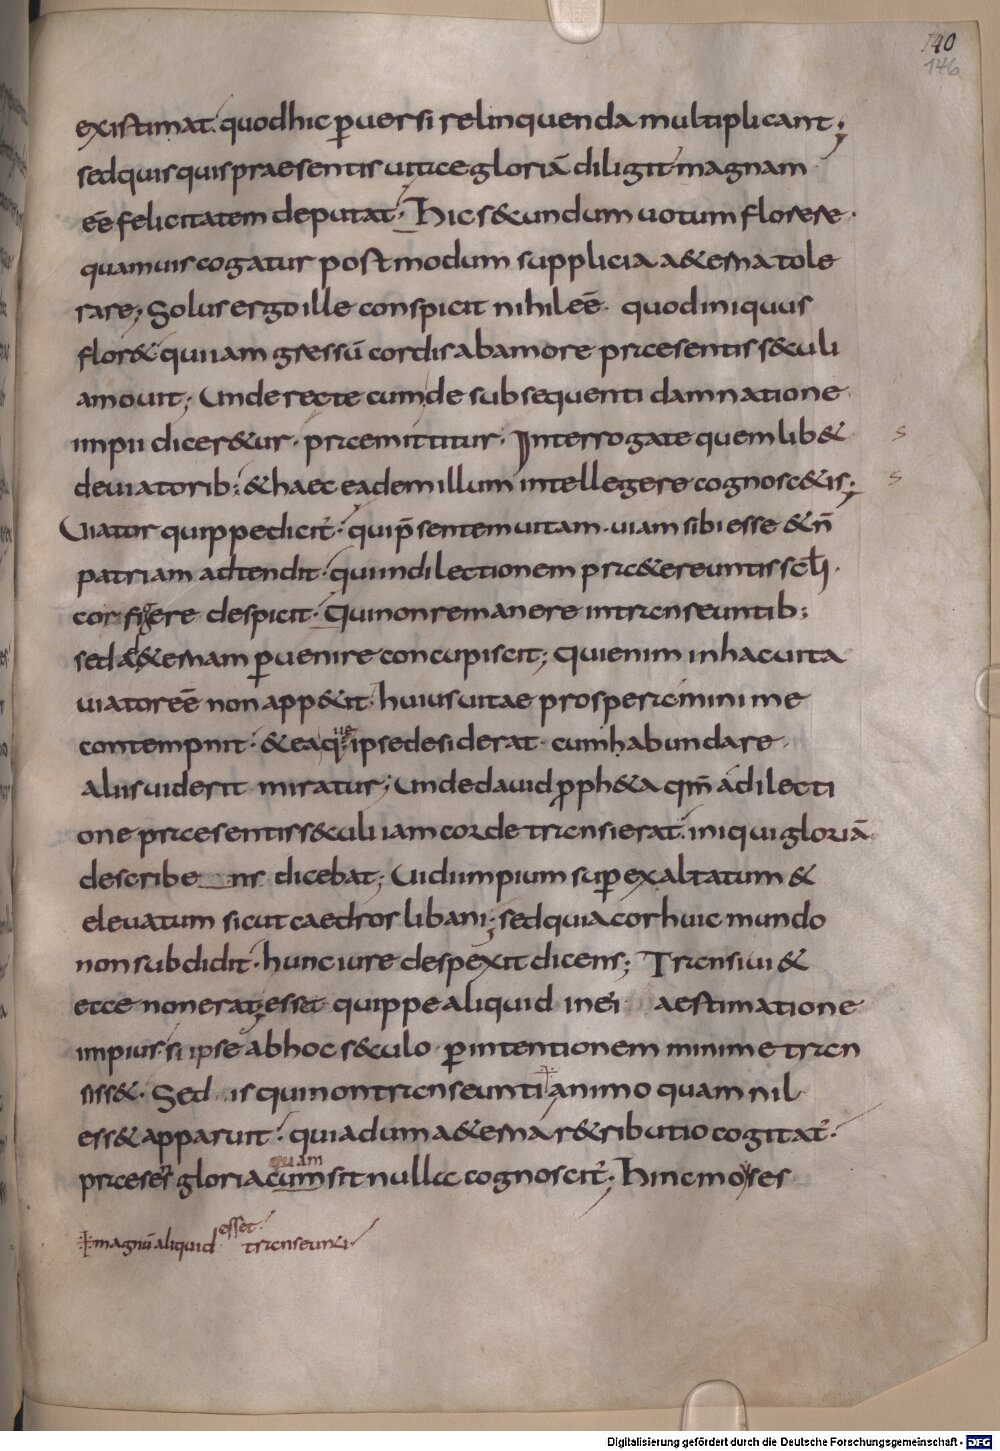 140
146
existimat. quod hic ꝑuersi relinquenda multiplicant;
sed quisquis praesentis uitae gloriā diligit magnam
eē felicitatem deputat. Hic s&undum uotum florere.
quamuis cogatur postmodum supplicia a&erna tole
rare; Solus ergo ille conspicit nihil eē. quod iniquus
flor& qui iam gressū cordis ab amore praesentis s&culi
amouit; Unde recte cum de subsequenti damnatione
impii dicer&ur. praemittitur. Interrogate quemlib&
de uiatorib; & haec eadem illum intellegere cognosc&is;
Uiator quippe dicit̄. qui p̄sentem uitam. uiam sibi esse & n̄
patriam adtendit. qui in dilectionem praetereuntis scl̄i.
cor figere despicit. Qui non remanere in transeuntib;
sed ad &ernam ꝑuenire concupiscit; Qui enim in hac uita
uiator eē non app&it. huius uitae prospera minime
contempnit. & ea quae ipse desiderat. cum habundare
aliis uiderit miratur; Unde dauid ꝓph&a qm̄ a dilecti
one praesentis s&culi iam corde transierat. iniqui gloriā
describens dicebat; Uidi impium suꝑexaltatum &
eleuatum sicut caedros libani; sed quia cor huic mundo
non subdidit. hunc iure despexit dicens; Transiui &
ecce non erat; esset quippe aliquid in ei aestimatione
impius. si ipse ab hoc s&culo ꝑ intentionem minime tran
siss&. Sed is qui non transeunti animo quam nil
ess& apparuit. quia dum a&erna r&ributio cogitat̄.
praesens gloria quam cum sit nulla cognoscit̄. Hinc moyses
magnū aliquid esset transeunti.
Digitalisierung gefördert durch die Deutsche Forschungsgemeinschaft - DFG